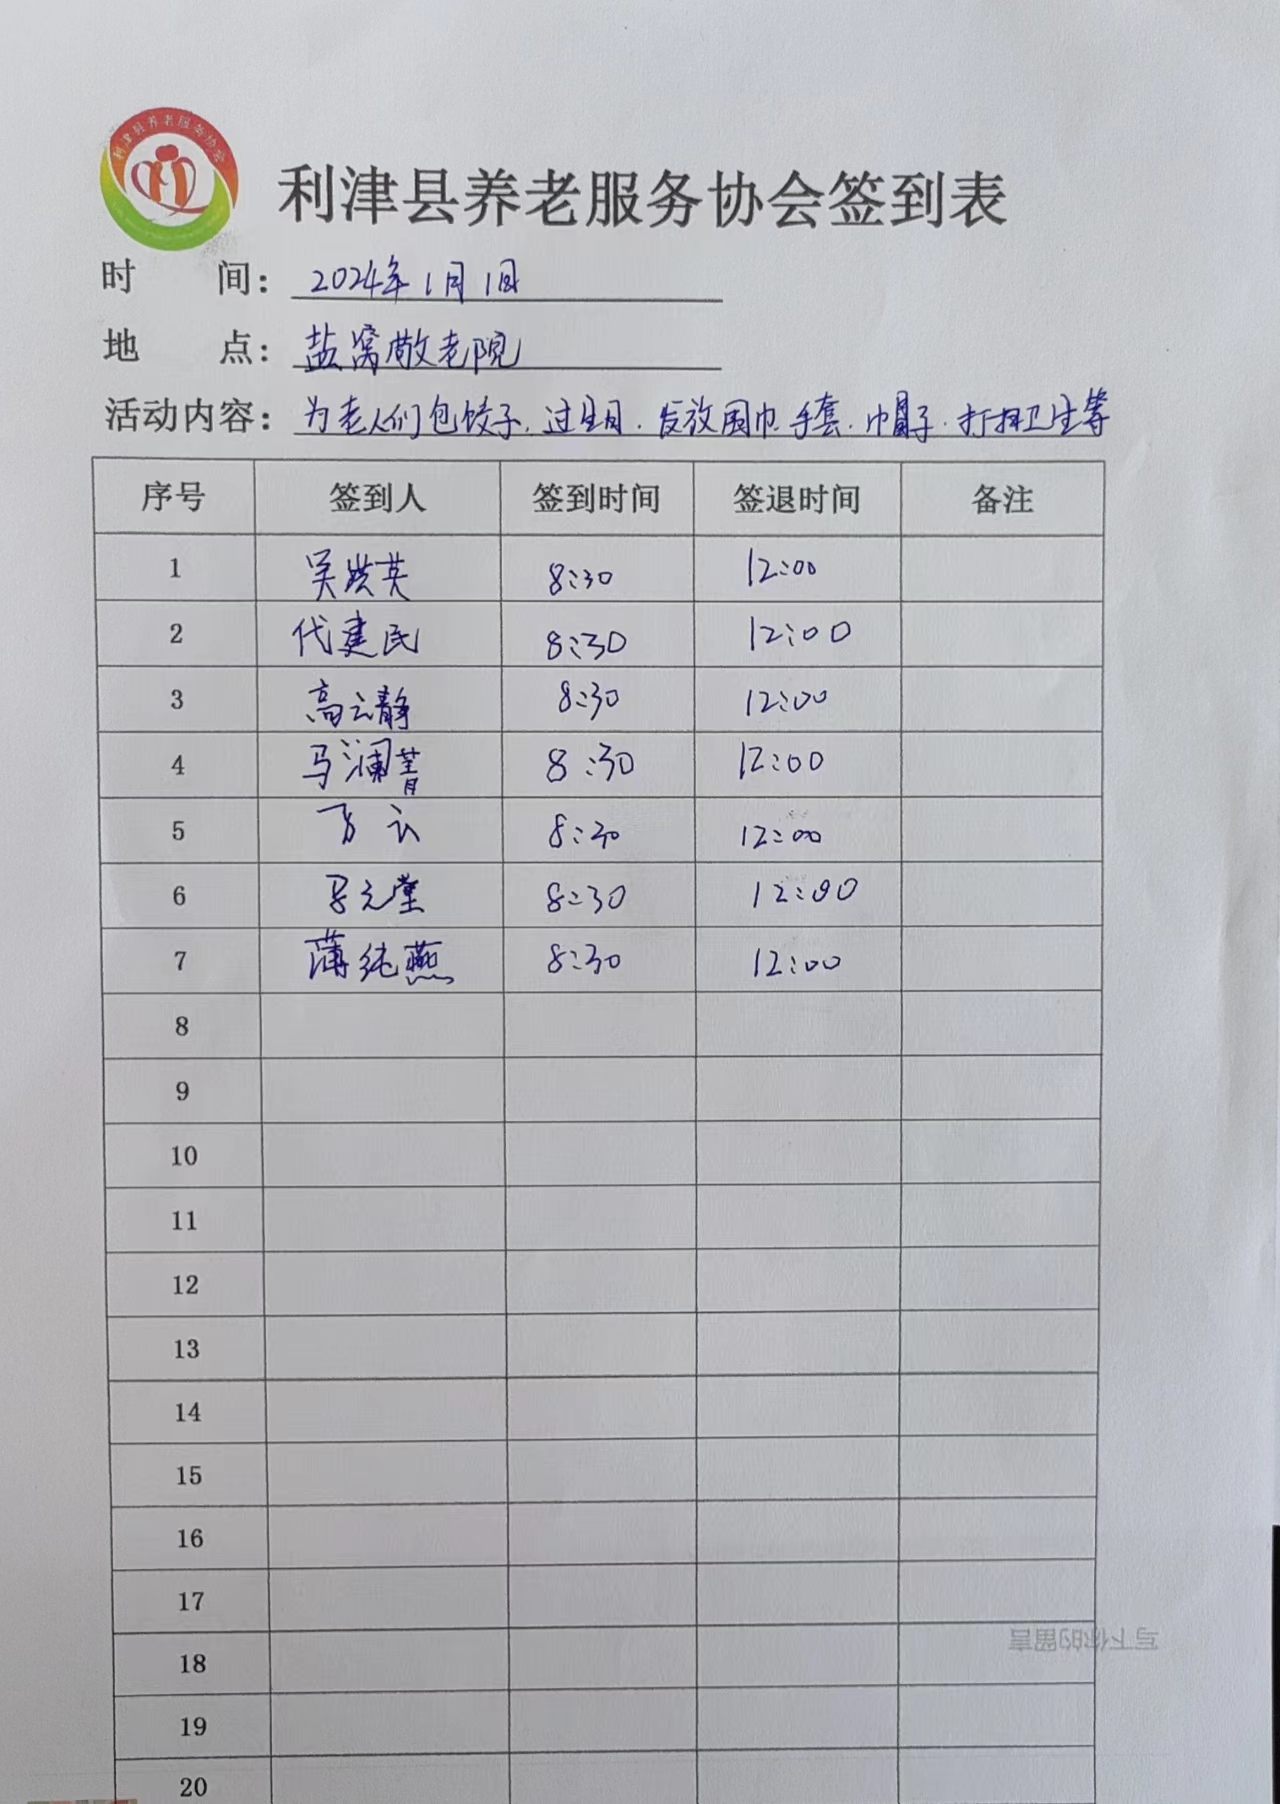 利津县养老服务协会
利津县养老服务协会签到表
时 间: 2024年1月1日
地 点: 盐窝敬老院
活动内容: 为老人们包饺子.过生日.发放围巾.手套.帽子.打扫卫生等
序号 签到人 签到时间 签退时间 备注
1 吴洪英 8:30 12:00
2 代建民 8:30 12:00
3 高云静 8:30 12:00
4 马澜菁 8:30 12:00
5 8:30 12:00
6 8:30 12:00
7 薄纯燕 8:30 12:00
8
9
10
11
12
13
14
15
16
17
写下你的留言
18
19
20